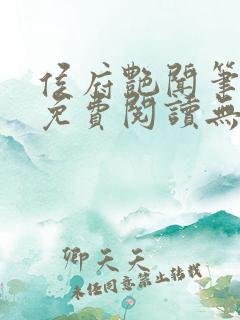 侯府艷聞筆
免費閱讀無
卿天天
未經同意禁止轉載